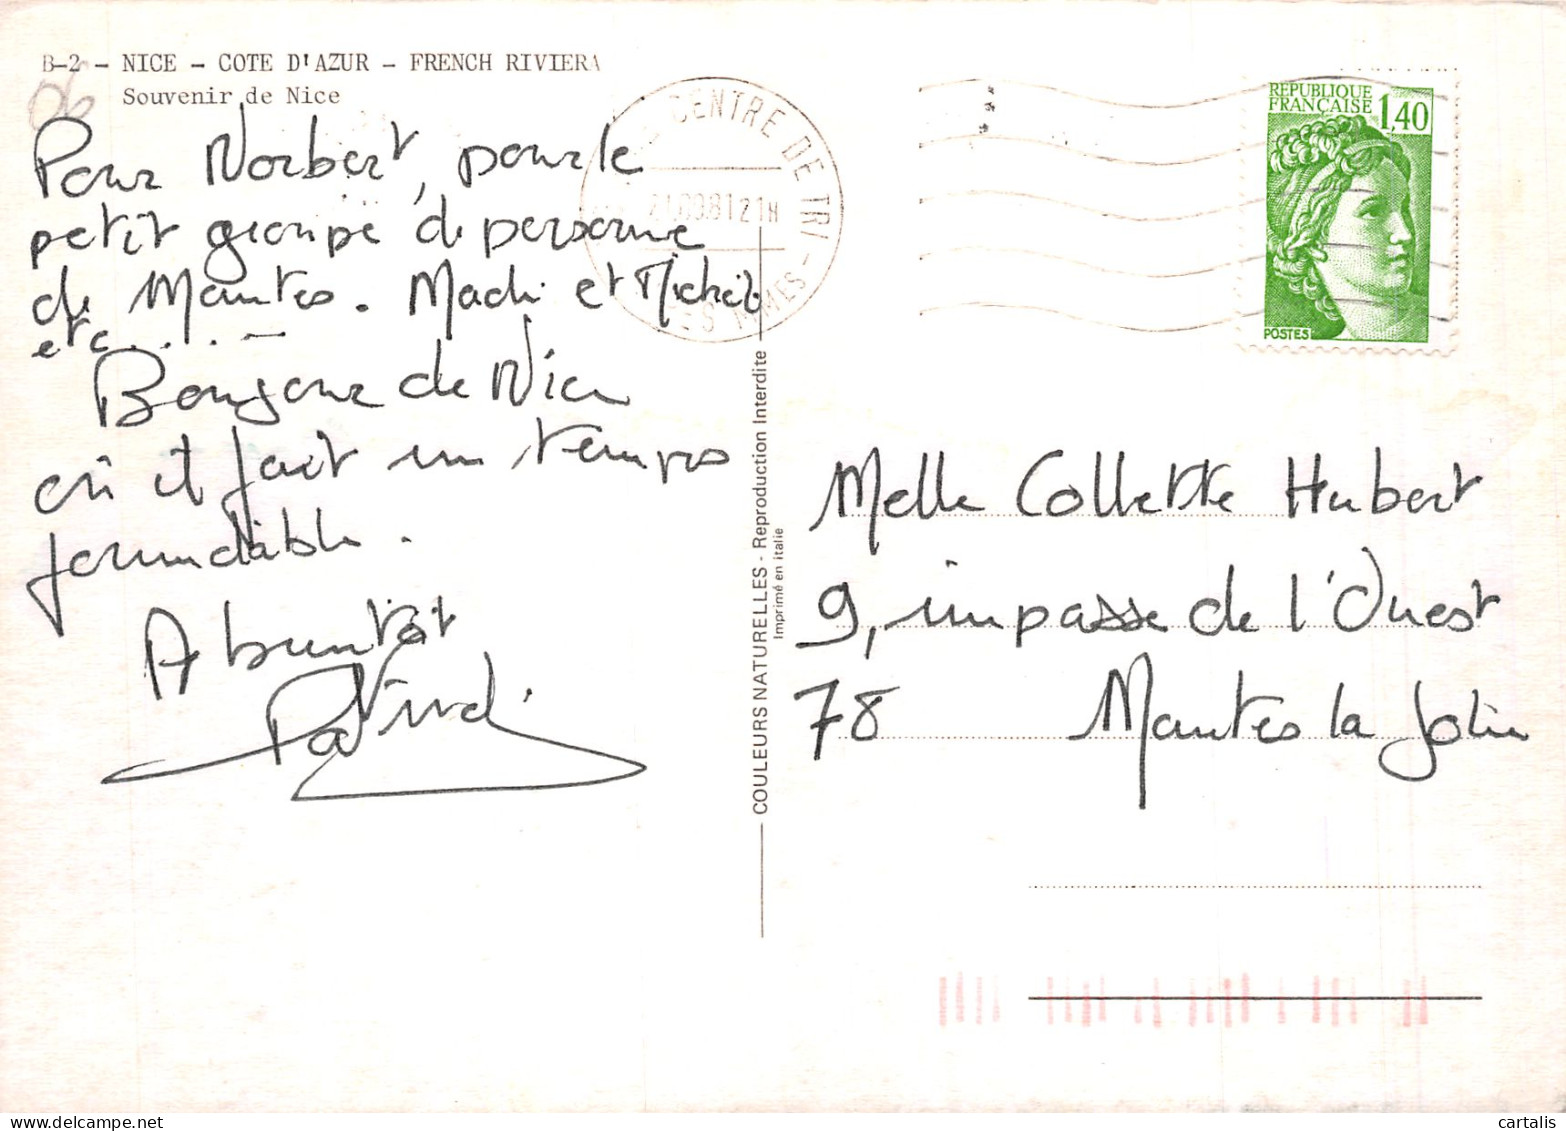 B-2 - NICE - COTE D'AZUR - FRENCH RIVIERA
Souvenir de Nice
06
Pour Norbert, pour le
petit groupe de personne
de Mantes. Madi et Michel
etc.....-
Bonjour de Nice
où il fait un temps
formidable.
A bientôt
CENTRE DE TRI -
81 21H
COULEURS NATURELLES - Reproduction Interdite
Imprimé en italie
RÉPUBLIQUE
FRANÇAISE 1,40
POSTES
Melle Collette Hubert
9, impasse de l'Ouest
78 Mantes la Jolie
cartalis